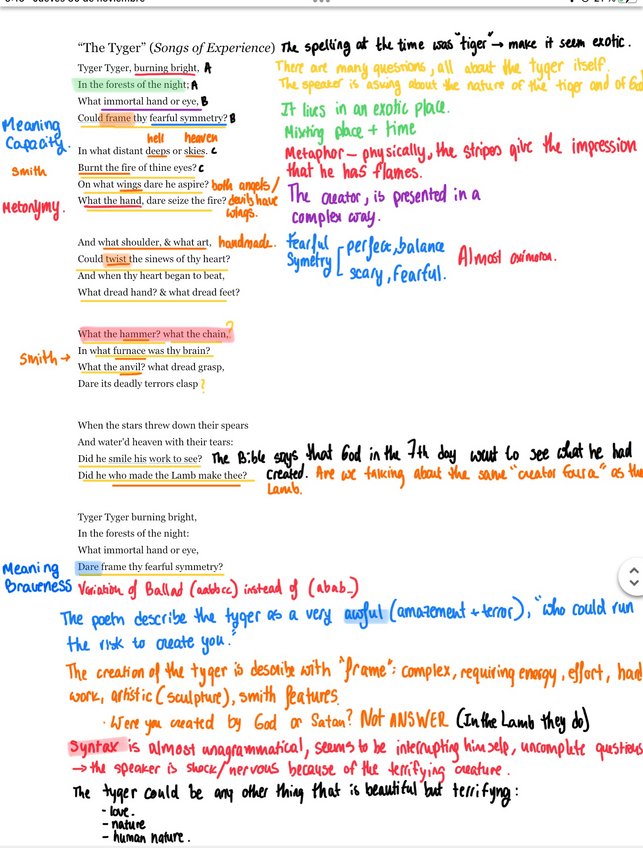 "The Tyger" (Songs of Experience) The spelling at the time was "tiger" → make it seem exotic.
Tyger Tyger, burning bright, A
There are many questions, all about the tyger itself.
In the forests of the night; A
The speaker is asking about the nature of the tiger and of God
What immortal hand or eye, B
Could frame thy fearful symmetry? B
It lives in an exotic place.
Mixting place + time
Meaning
Capacity.
hell heaven
In what distant deeps or skies. C
Metaphor – physically, the stripes give the impression
that he has flames.
Smith
Burnt the fire of thine eyes? C
On what wings dare he aspire? both angels/
devils have
wings.
Metonymy.
What the hand, dare seize the fire?
The creator, is presented in a
complex way.
And what shoulder, & what art, handmade.
Could twist the sinews of thy heart?
And when thy heart began to beat,
What dread hand? & what dread feet?
Fearful
Symetry
perfect, balance
scary, fearful.
Almost oximoron.
What the hammer? what the chain, ?
Smith →
In what furnace was thy brain?
What the anvil? what dread grasp,
Dare its deadly terrors clasp ?
When the stars threw down their spears
And water'd heaven with their tears:
Did he smile his work to see? The Bible says that God in the 7th day want to see what he had
created.
Did he who made the Lamb make thee? Are we talking about the same "creator as the
Lamb.
Tyger Tyger burning bright,
In the forests of the night:
What immortal hand or eye,
Meaning
Braveness
Dare frame thy fearful symmetry?
Variation of Ballad (aabbcc) instead of (abab..)
The poem describe the tyger as a very awful (amazement + terror), "who could run
the risk to create you."
The creation of the tyger is describe with "frame": complex, requiring energy, effort, hard
work, artistic (sculpture), smith features.
· Were you created by God or Satan? NOT ANSWER (In the Lamb they do)
Syntax is almost unagrammatical, seems to be interrupting himself, uncomplete questions
→ the speaker is shock/nervous because of the terrifying creature.
The tyger could be any other thing that is beautiful but terrifyng:
- love.
- nature
- human nature.